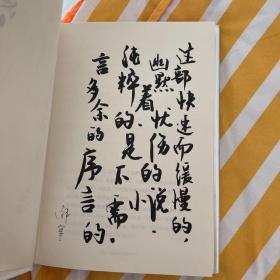 这部快速而缓慢的，
幽默着、忧伤的小说，
纯粹的是不需
言多余的序言的。